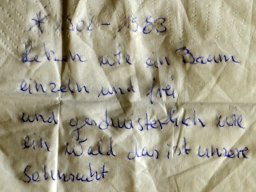 Leben wie ein Baum
einzeln und frei
und geschwisterlich wie
ein Wald das ist unsere
Sehnsucht